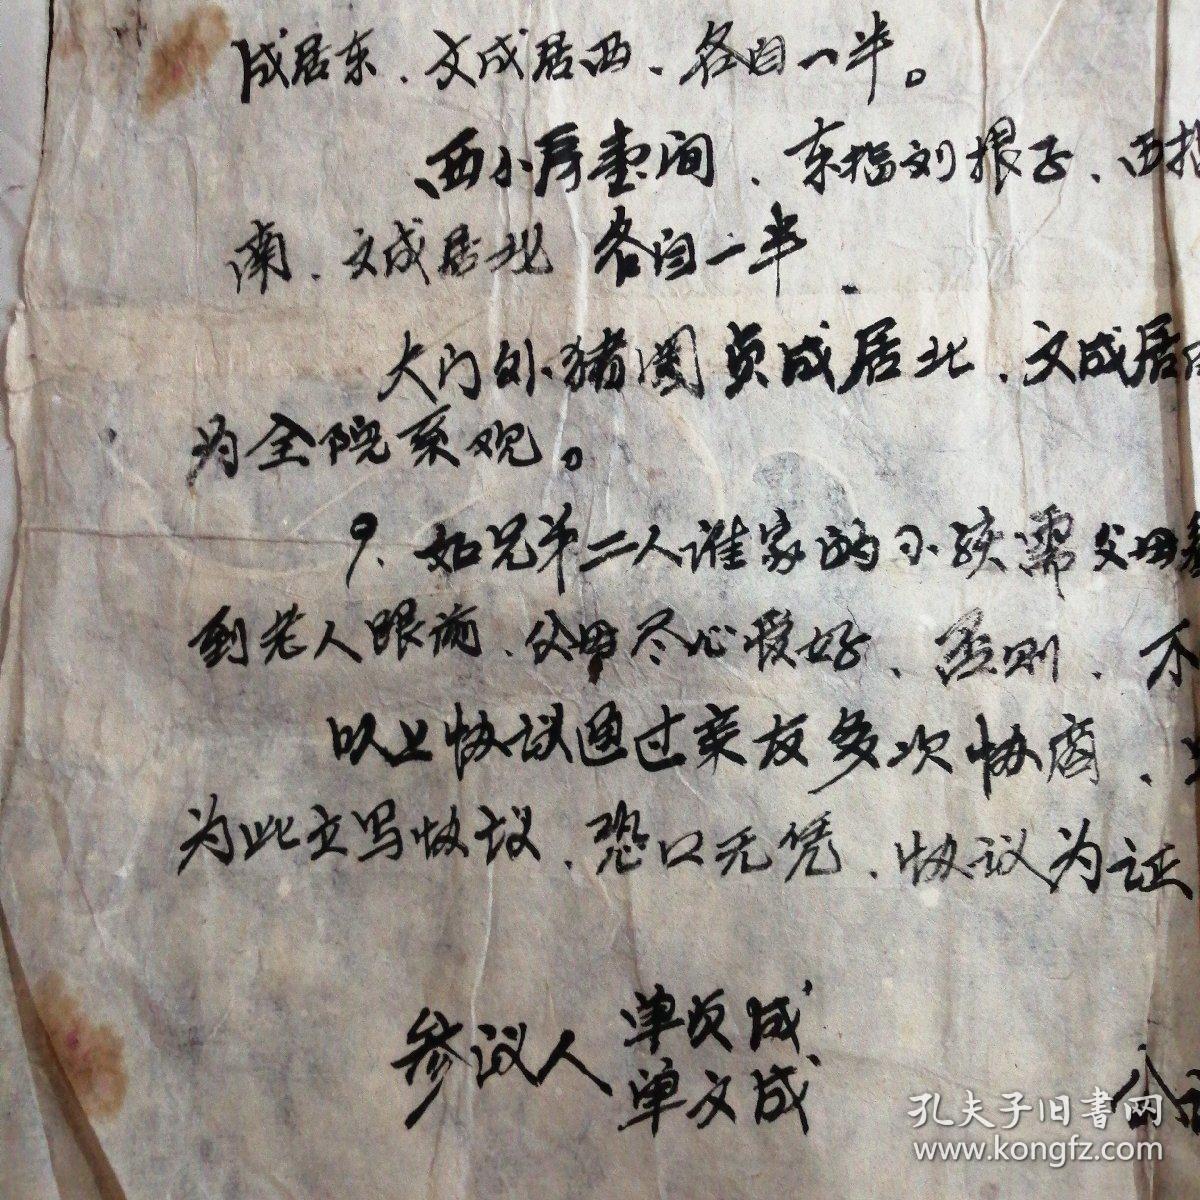 成居东、文成居西、各自一半。
西小房壹间、东挡刘根子、西
南、文成居北 各自一半.
大门外猪圈贞成居北、文成居
为全院系观。
9、如兄弟二人谁家的小孩需父母
到老人眼前、父母尽心愛好、否则、不
以上协议通过亲友多次协商、
为此立写协议、恐口无凭、协议为证
参议人 单贞成
单文成
孔夫子旧書网
www.kongfz.com